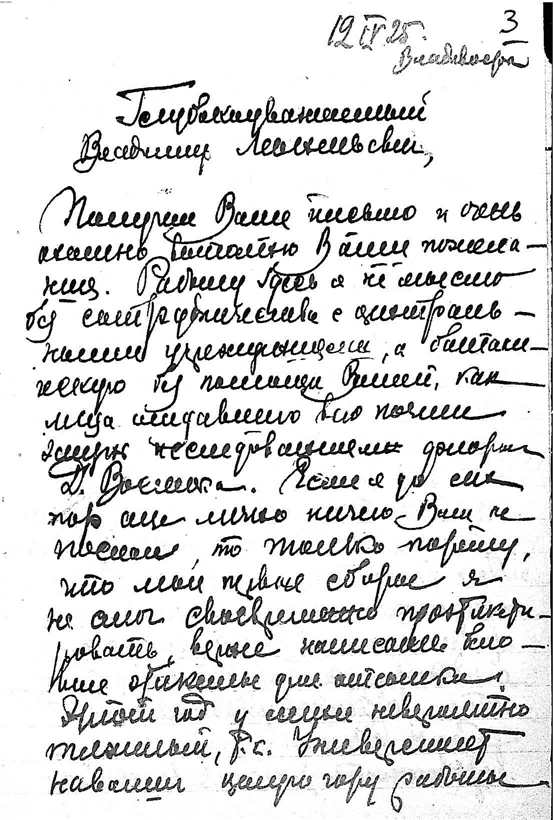 3
12 IV 25.
Владивосток
Глубокоуважаемый
Владимир Леонтьевич,
Получил Ваше письмо и очень
охотно выполню Ваши пожела-
ния. Работу здесь я не мыслю
без сотрудничества с централь-
ными учреждениями, а ботани-
ческую без помощи Вашей, как
лица отдавшего всю почти
жизнь исследованиям флоры
Д. Востока. Если я до сих
пор еще лично ничего Вам не
послал, то только потому,
что мои первые сборы я
не смог своевременно
вернее написать
этикетки для отсылки.
Этот год у меня невероятно
тяжелый, т.к. Университет
навалил целую гору работы